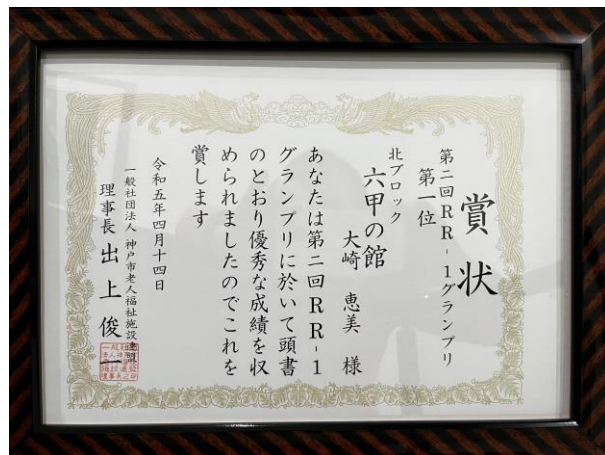 賞状
第二回RR-1グランプリ
第一位
北ブロック
六甲の館
大崎 恵美 様
あなたは第二回RR-1
グランプリに於いて頭書
のとおり優秀な成績を収
められましたのでこれを
賞します
令和五年四月十四日
一般社団法人 神戸市老人福祉施設連盟
理事長 出上 俊一